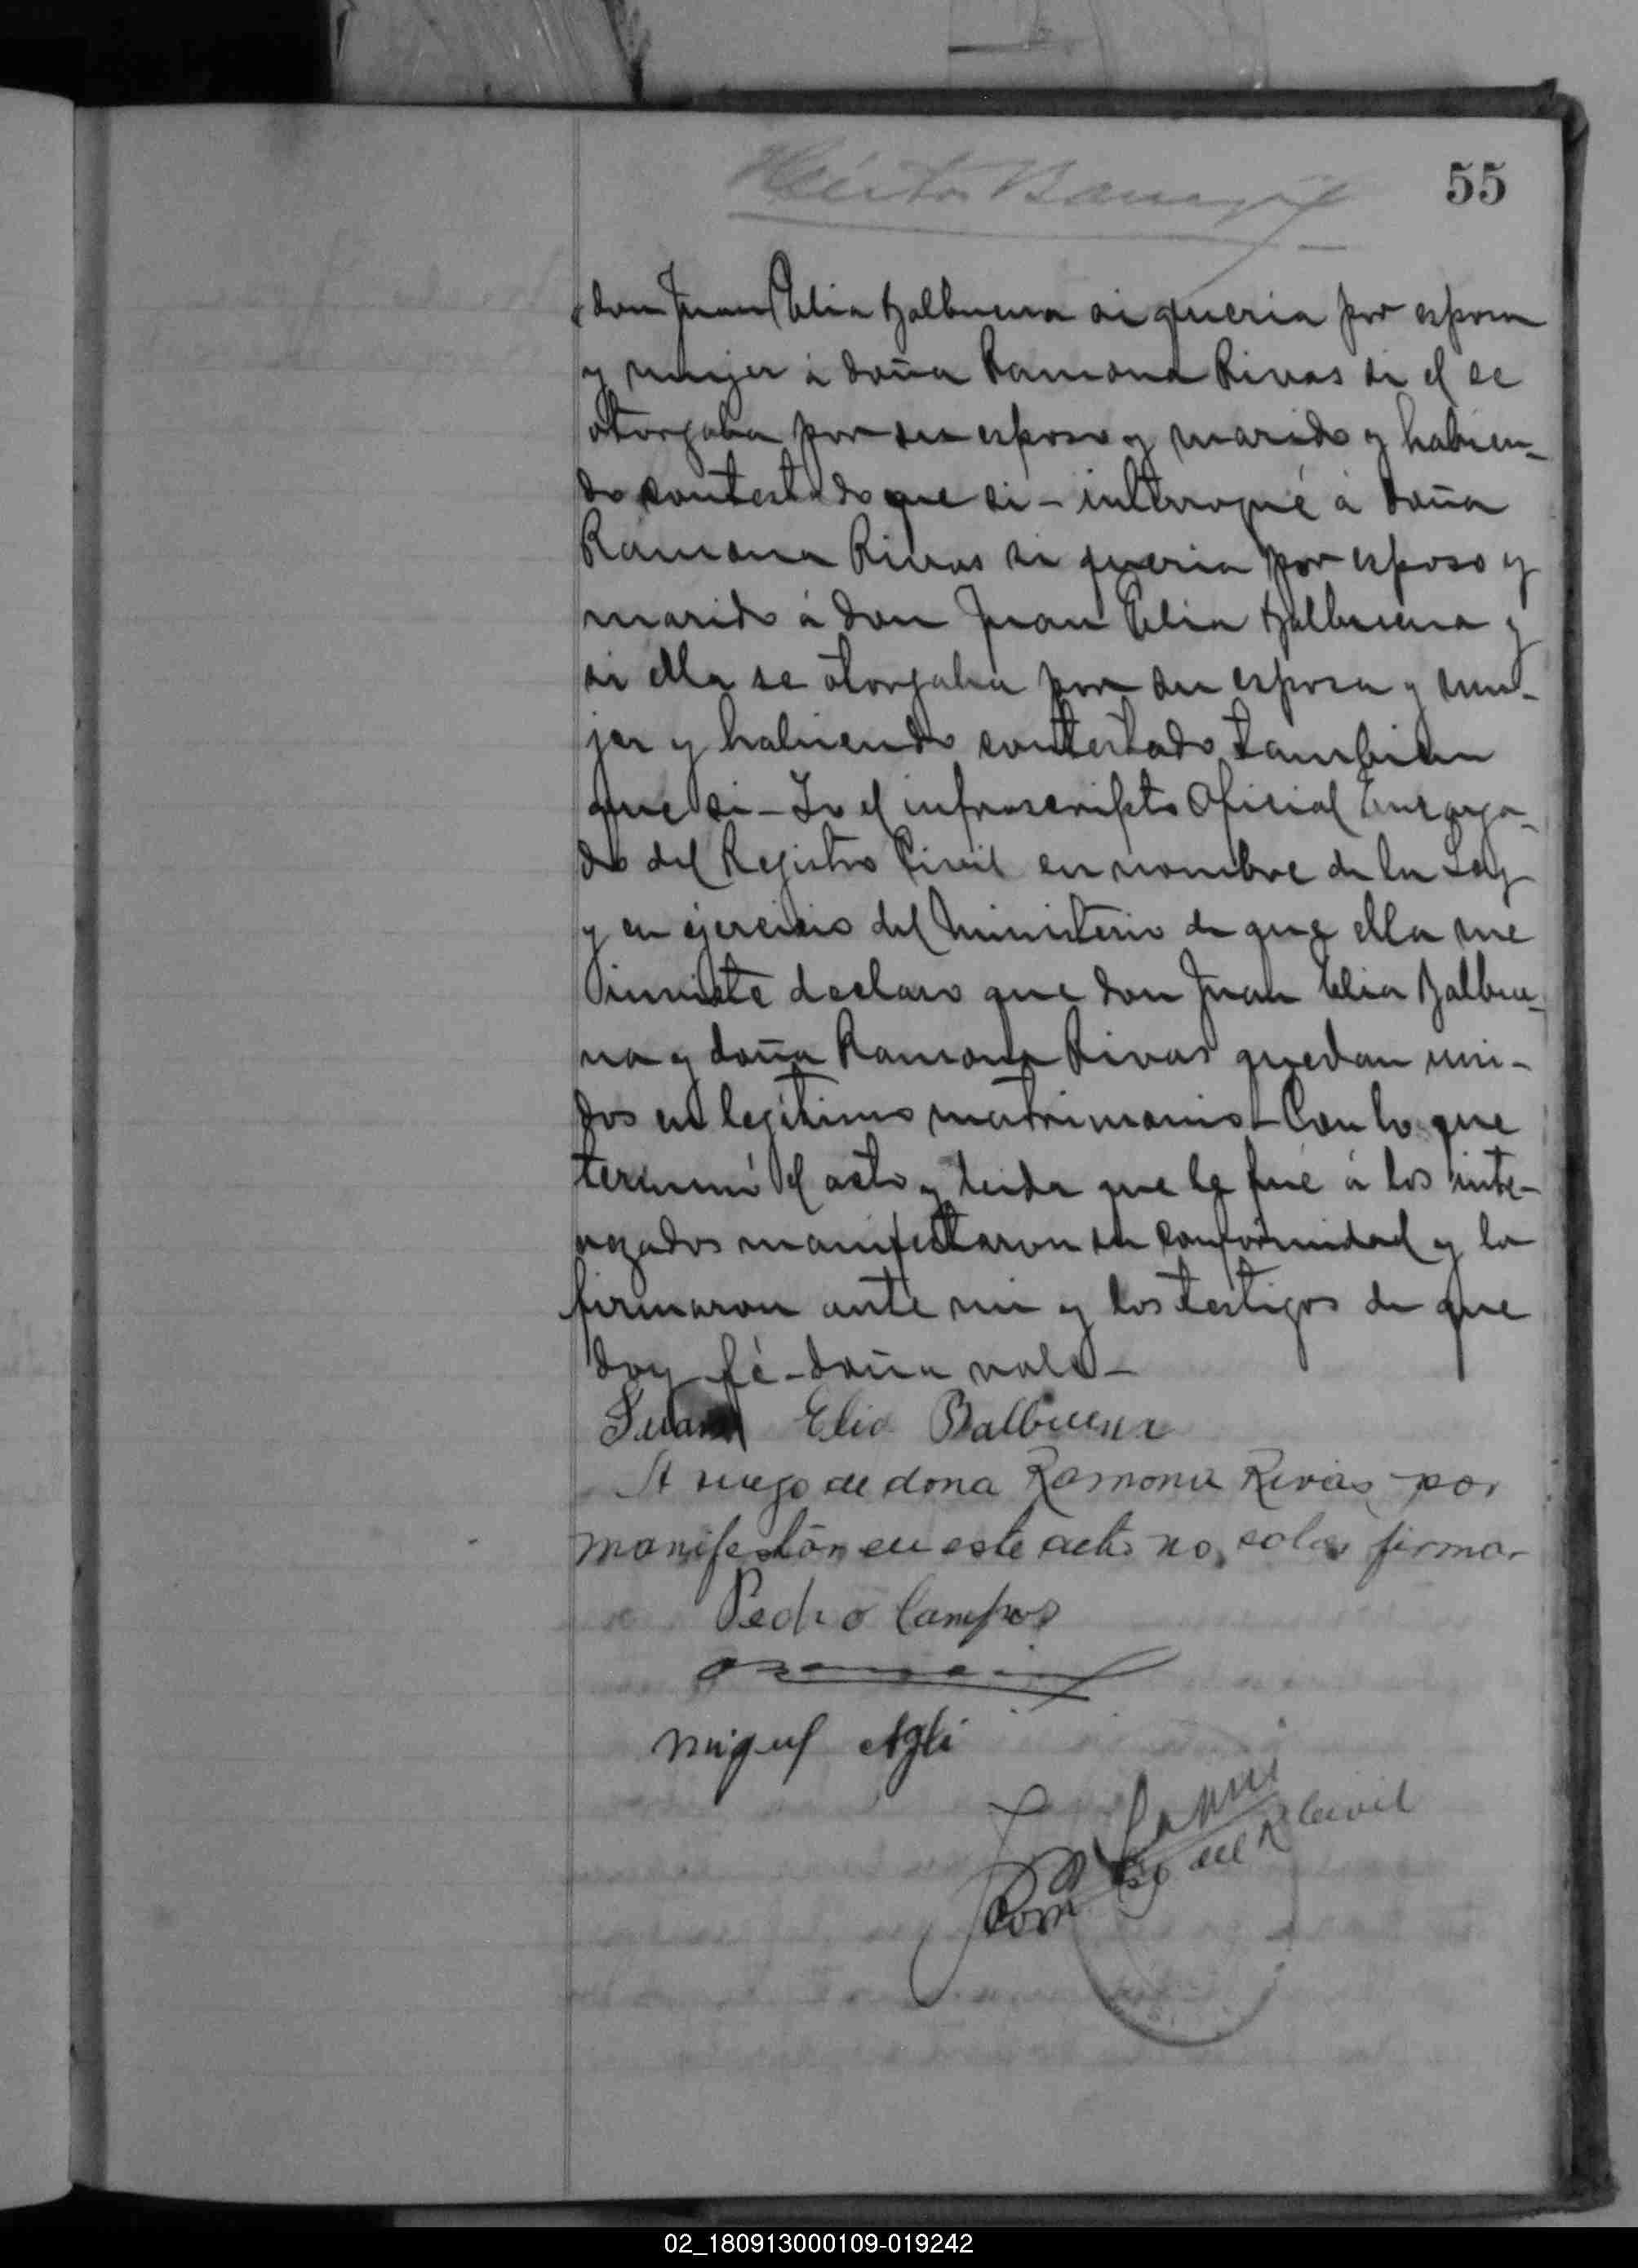 55
don Juan Elia Balbuena si queria por esposa
y mujer á doña Ramona Rivas si el se
otorgaba por su esposo y marido y habien-
do contestado que si - interrogué á doña
Ramona Rivas si queria por esposo y
marido á don Juan Elia Balbuena y
si ella se otorgaba por su esposa y mu-
jer y habiendo contestado tambien
que si - Yo el infrascripto Oficial Encarga-
do del Registro Civil en nombre de la Ley
y en ejercicio del ministerio de que ella me
inviste declaro que don Juan Elia Balbue-
na y doña Ramona Rivas quedan uni-
dos en legitimo matrimonio - Con lo que
terminó el acto y leida que le fué á los inte-
rezados manifestaron su conformidad y la
firmaron ante mi y los testigos de que
doy fé - doña vale -
Juan Elia Balbuena
A ruego de dona Ramona Rivas por
manifestar en este acto no saber firmar
Pedro Campos
Miguel
del R Civil
02_180913000109-019242